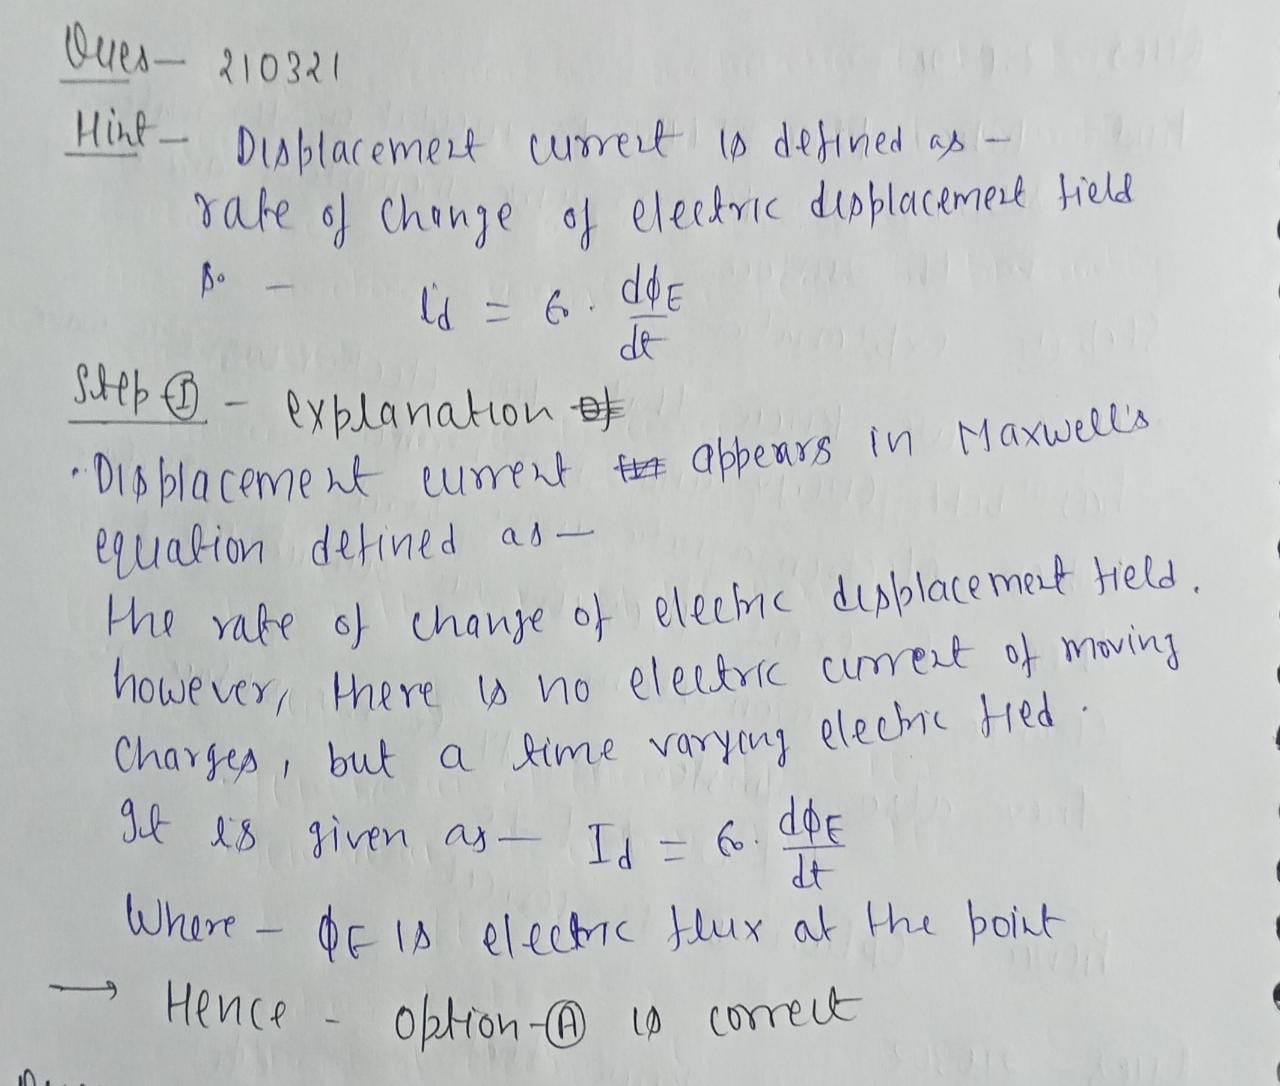 Ques— 210321
Hint— Displacement current is defined as —
rate of change of electric displacement field
so — id = ϵ₀ . dϕE/dt
Step ① - explanation of
Displacement current appears in Maxwell's
equation defined as —
the rate of change of electric displacement field.
however, there is no electric current of moving
Charges, but a time varying electric fied.
It is given as — Id = ϵ₀. dϕE/dt
Where — ϕE is electric flux at the point
→ Hence - option-Ⓐ is correct